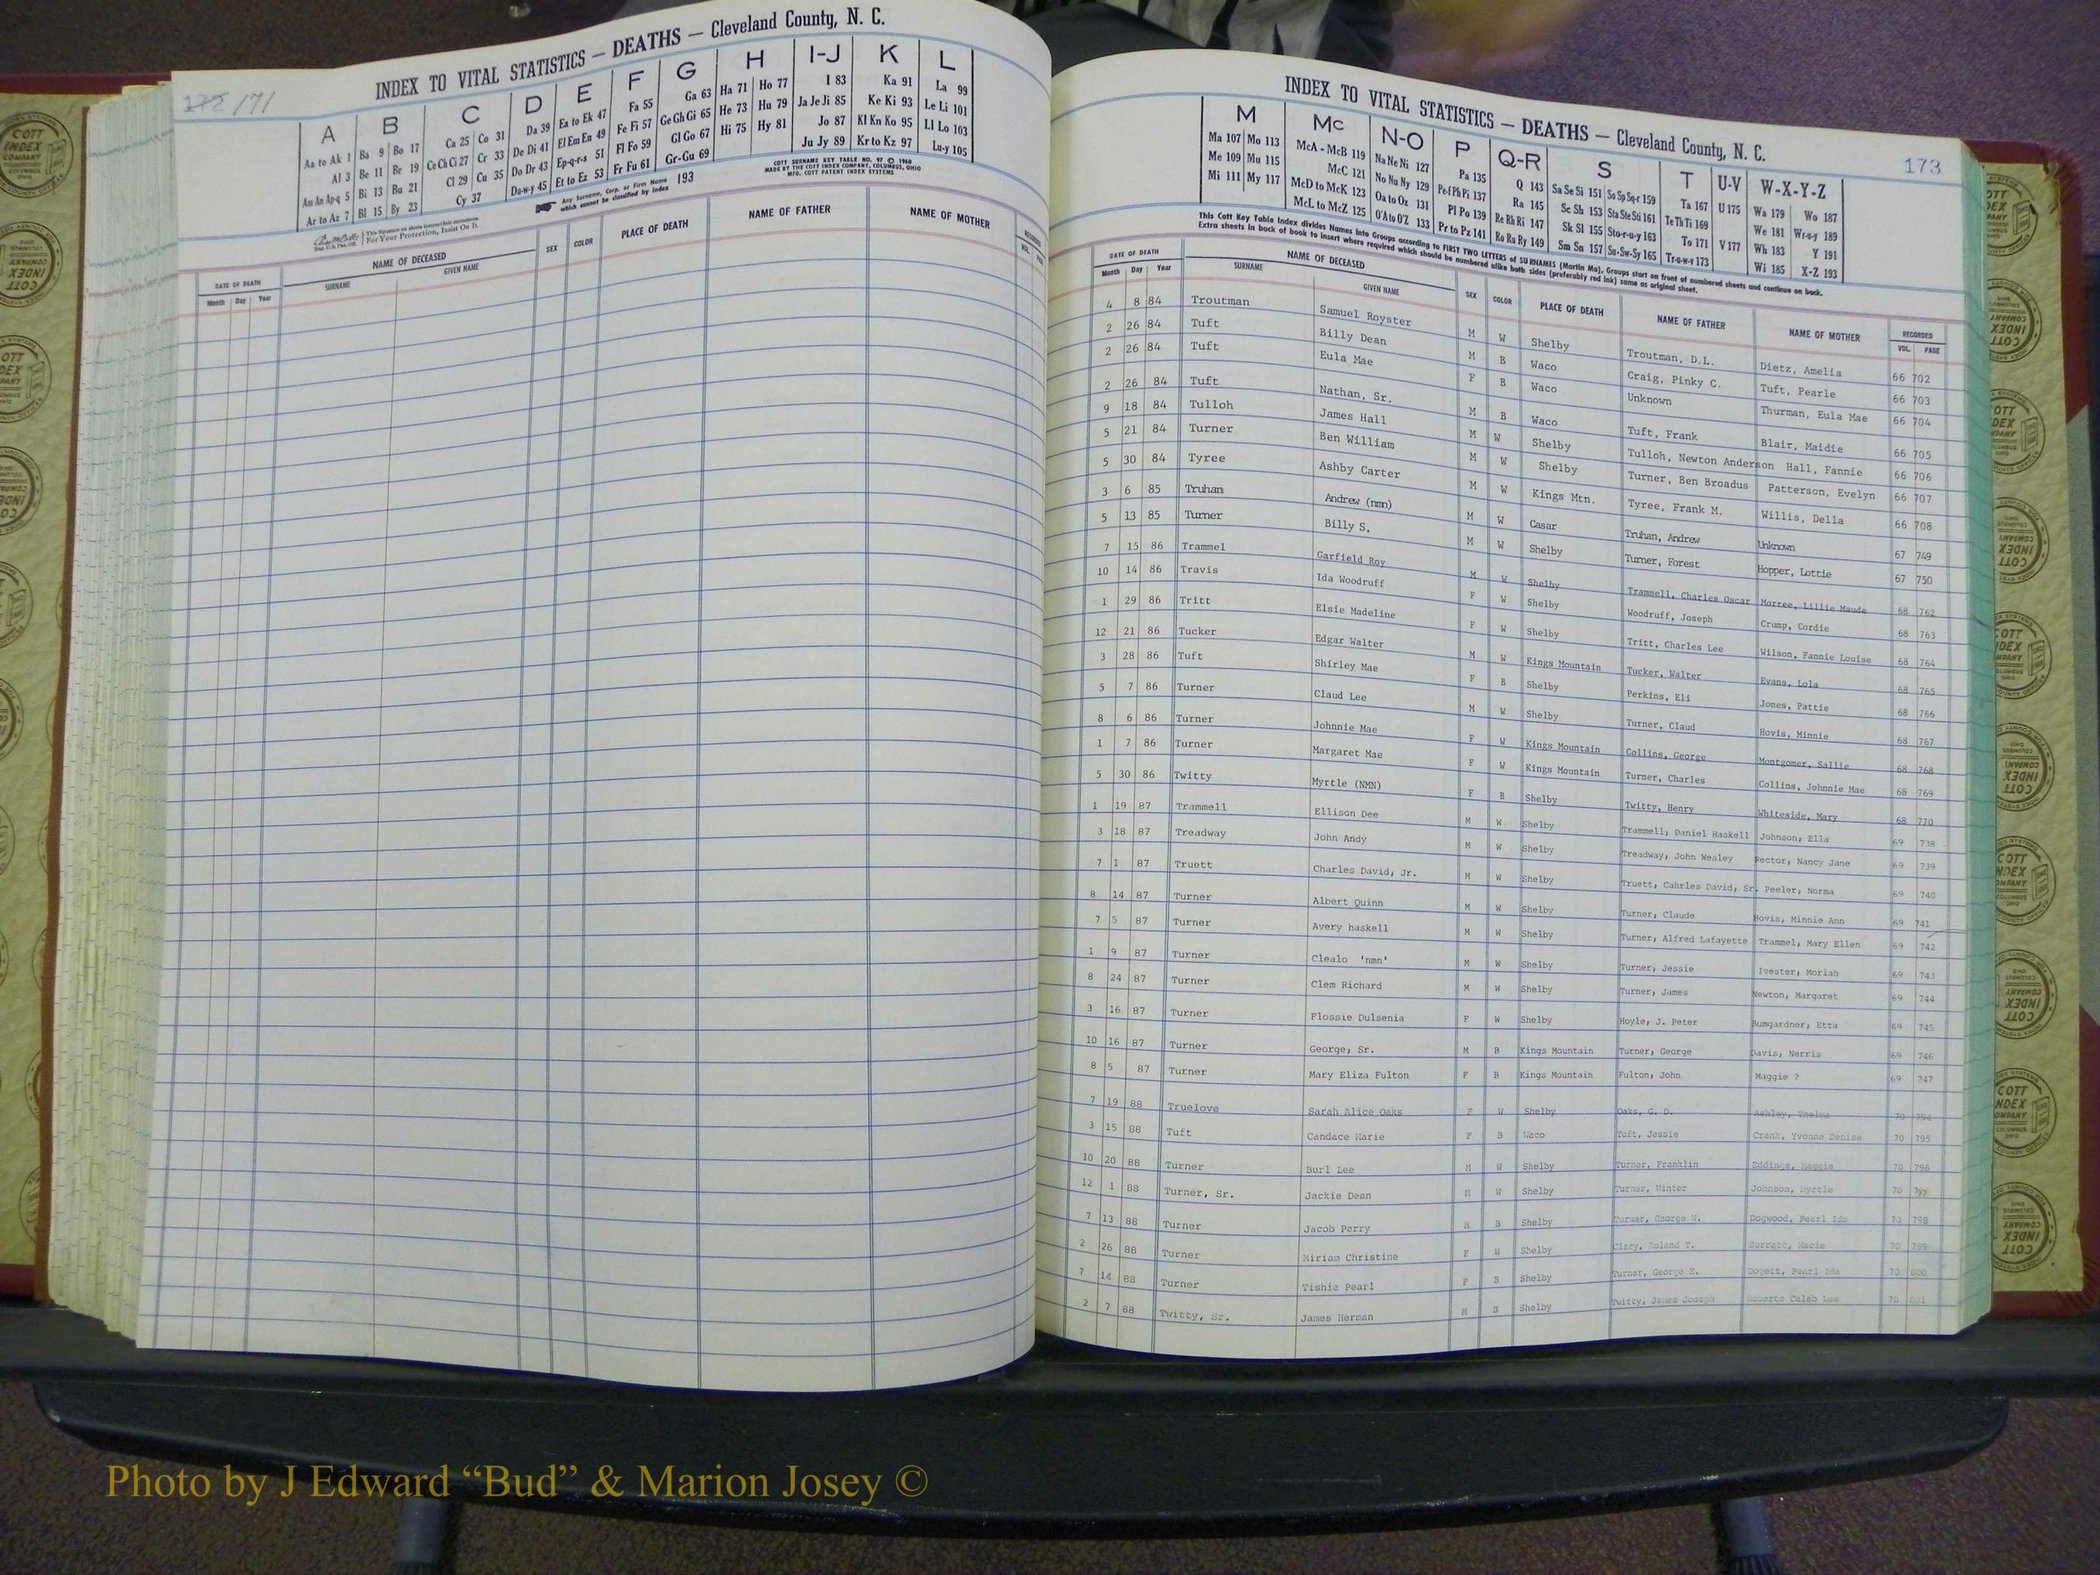 INDEX TO VITAL STATISTICS — DEATHS — Cleveland County, N. C.
171
A B C D E F G H I-J K L
Aa to Ak 1 Ba 9 Bo 17 Ca 25 Co 31 Da 39 Ea to Ek 47 Fa 55 Ga 63 Ha 71 Ho 77 I 83 Ka 91 La 99
Al 3 Be 11 Br 19 Ce Ch Ci 27 Cr 33 De Di 41 El Em En 49 Fe Fi 57 Ge Gh Gi 65 He 73 Hu 79 Ja Je Ji 85 Ke Ki 93 Le Li 101
Am An Ap-q 5 Bi 13 Bu 21 Cl 29 Cu 35 Do Dr 43 Ep-q-r-s 51 Fl Fo 59 Gl Go 67 Hi 75 Hy 81 Jo 87 Kl Kn Ko 95 Ll Lo 103
Ar to Az 7 Bl 15 By 23 Cy 37 Du-w-y 45 Et to Ez 53 Fr Fu 61 Gr-Gu 69 Ju Jy 89 Kr to Kz 97 Lu-y 105
Any Surname, Corp. or Firm Name which cannot be classified by Index 193
COTT SURNAME KEY TABLE NO. 97 © 1960
MADE BY THE COTT INDEX COMPANY, COLUMBUS, OHIO
MFG. COTT PATENT INDEX SYSTEMS
For Your Protection, Insist On It.
DATE OF DEATH NAME OF DECEASED SEX COLOR PLACE OF DEATH NAME OF FATHER NAME OF MOTHER
Month Day Year SURNAME GIVEN NAME
INDEX TO VITAL STATISTICS — DEATHS — Cleveland County, N. C.
173
M Mc N-O P Q-R S T U-V W-X-Y-Z
Ma 107 Mo 113 McA - McB 119 Na Ne Ni 127 Pa 135 Q 143 Sa Se Si 151 So Sp Sq-r 159 Ta 167 U 175 Wa 179 Wo 187
Me 109 Mu 115 McC 121 No Nu Ny 129 Pe-f Ph Pi 137 Ra 145 Sc Sh 153 Sta Ste Sti 161 Te Th Ti 169 We 181 Wr-u-y 189
Mi 111 My 117 McD to McK 123 Oa to Oz 131 Pl Po 139 Re Rh Ri 147 Sk Sl 155 Sto-r-u-y 163 To 171 V 177 Wh 183 Y 191
McL to McZ 125 O'A to O'Z 133 Pr to Pz 141 Ro Ru Ry 149 Sm Sn 157 Su-Sw-Sy 165 Tr-u-w-y 173 Wi 185 X-Z 193
This Cott Key Table Index divides Names into Groups according to FIRST TWO LETTERS of SURNAMES (Martin Ma). Groups start on front of numbered sheets and continue on back.
Extra sheets in back of book to insert where required which should be numbered alike both sides (preferably red ink) same as original sheet.
DATE OF DEATH NAME OF DECEASED SEX COLOR PLACE OF DEATH NAME OF FATHER NAME OF MOTHER RECORDED
Month Day Year SURNAME GIVEN NAME VOL. PAGE
4 8 84 Troutman Samuel Royster M W Shelby Troutman, D.L. Dietz, Amelia 66 702
2 26 84 Tuft Billy Dean M B Waco Craig, Pinky C. Tuft, Pearle 66 703
2 26 84 Tuft Eula Mae F B Waco Unknown Thurman, Eula Mae 66 704
2 26 84 Tuft Nathan, Sr. M B Waco Tuft, Frank Blair, Maidie 66 705
9 18 84 Tulloh James Hall M W Shelby Tulloh, Newton Anderson Hall, Fannie 66 706
5 21 84 Turner Ben William M W Shelby Turner, Ben Broadus Patterson, Evelyn 66 707
5 30 84 Tyree Ashby Carter M W Kings Mtn. Tyree, Frank M. Willis, Della 66 708
3 6 85 Truhan Andrew (nmn) M W Casar Truhan, Andrew Unknown 67 749
5 13 85 Turner Billy S. M W Shelby Turner, Forest Hopper, Lottie 67 750
7 15 86 Trammel Garfield Roy M W Shelby Trammell, Charles Oscar Morree, Lillie Maude 68 762
10 14 86 Travis Ida Woodruff F W Shelby Woodruff, Joseph Crump, Cordie 68 763
1 29 86 Tritt Elsie Madeline F W Shelby Tritt, Charles Lee Wilson, Fannie Louise 68 764
12 21 86 Tucker Edgar Walter M W Kings Mountain Tucker, Walter Evans, Lola 68 765
3 28 86 Tuft Shirley Mae F B Shelby Perkins, Eli Jones, Pattie 68 766
5 7 86 Turner Claud Lee M W Shelby Turner, Claud Hovis, Minnie 68 767
8 6 86 Turner Johnnie Mae F W Kings Mountain Collins, George Montgomer, Sallie 68 768
1 7 86 Turner Margaret Mae F W Kings Mountain Turner, Charles Collins, Johnnie Mae 68 769
5 30 86 Twitty Myrtle (NMN) F B Shelby Twitty, Henry Whiteside, Mary 68 770
1 19 87 Trammell Ellison Dee M W Shelby Trammell, Daniel Haskell Johnson, Ella 69 738
3 18 87 Treadway John Andy M W Shelby Treadway, John Wesley Rector, Nancy Jane 69 739
7 1 87 Truett Charles David, Jr. M W Shelby Truett, Cahrles David, Sr. Peeler, Norma 69 740
8 14 87 Turner Albert Quinn M W Shelby Turner, Claude Hovis, Minnie Ann 69 741
7 5 87 Turner Avery haskell M W Shelby Turner, Alfred Lafayette Trammel, Mary Ellen 69 742
1 9 87 Turner Clealo 'nmn' M W Shelby Turner, Jessie Ivester, Moriah 69 743
8 24 87 Turner Clem Richard M W Shelby Turner, James Newton, Margaret 69 744
3 16 87 Turner Flossie Dulsenia F W Shelby Hoyle, J. Peter Bumgardner, Etta 69 745
10 16 87 Turner George, Sr. M B Kings Mountain Turner, George Davis, Nerris 69 746
8 5 87 Turner Mary Eliza Fulton F B Kings Mountain Fulton, John Maggie ? 69 747
7 19 88 Truelove Sarah Alice Oaks F W Shelby Oaks, G. D. Ashley, Thelma 70 794
3 15 88 Tuft Candace Marie F B Waco Tuft, Jessie Crank, Yvonne Denise 70 795
10 20 88 Turner Burl Lee M W Shelby Turner, Franklin Eddings, Maggie 70 796
12 1 88 Turner, Sr. Jackie Dean M W Shelby Turner, Winter Johnson, Myrtle 70 797
7 13 88 Turner Jacob Perry M B Shelby Turner, George N. Dogwood, Pearl Ida 70 798
2 26 88 Turner Miriam Christine F W Shelby Clary, Roland T. Surratt, Macie 70 799
7 14 88 Turner Tishie Pearl F B Shelby Turner, George E. Dogett, Pearl Ida 70 800
2 7 88 Twitty, Sr. James Herman M B Shelby Twitty, James Joseph Roberts Caleb Lee 70 801
Photo by J Edward “Bud” & Marion Josey ©